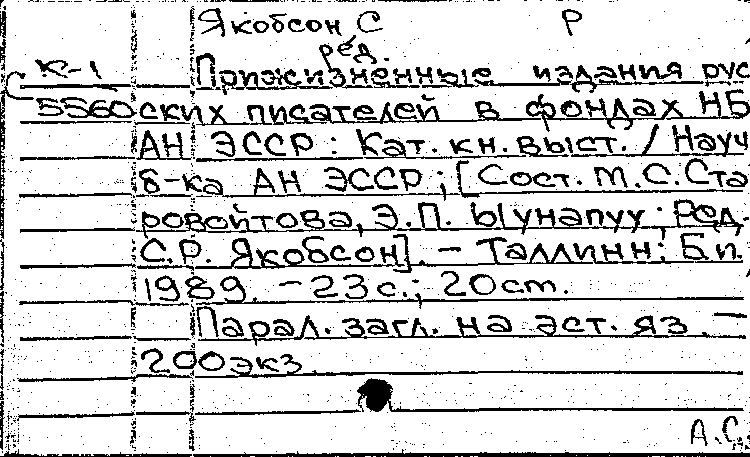 Якобсон С Р
ред.
К-1 Прижизненные издания рус
С 5560 ских писателей в фондах НБ
АН ЭССР : Кат. кн. выст. / Науч
б-ка АН ЭССР ; [Сост. М.С. Ста
ровойтова, Э.П. Ыунапуу ; Ред.
С.Р. Якобсон]. - Таллинн : Б.и.
1989. - 23 с. ; 20 cm.
Парал. загл. на эст. яз. -
200 экз.
А.С.